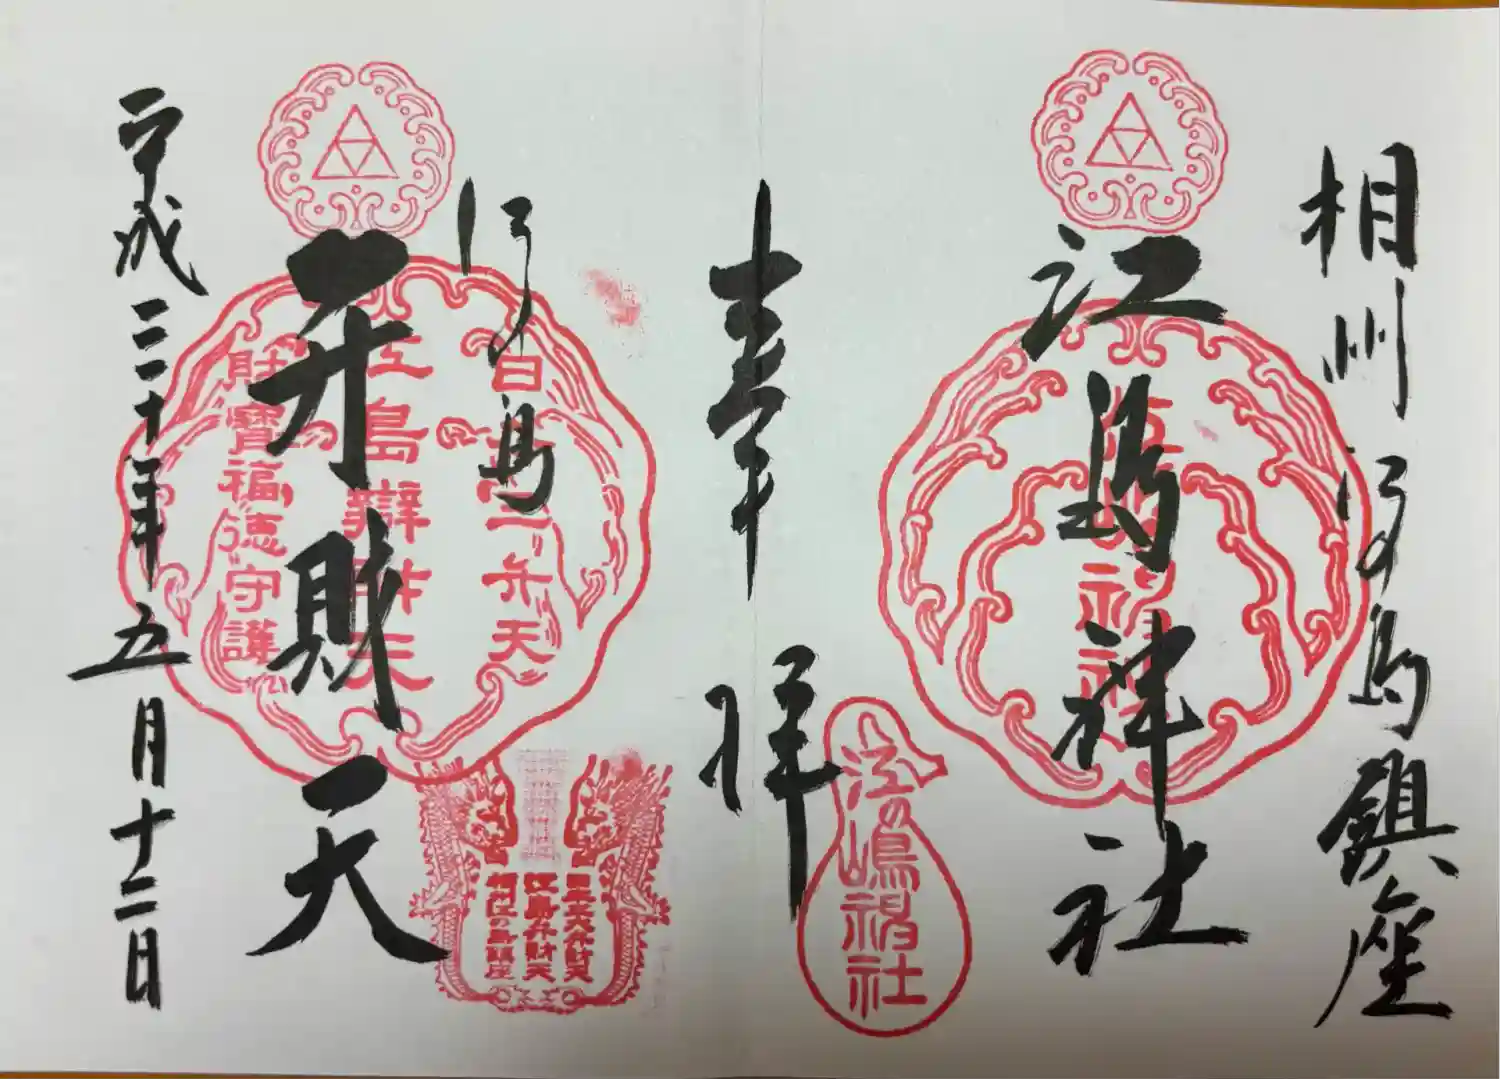 相州江の島鎮座
江島神社
江島神社
奉拝
江の嶋神社
江の島
弁財天
日本三大弁天
江島辯財天
財寶福徳守護
日本三大弁財天
江島弁財天
相州江の島鎮座
平成三十年五月十二日